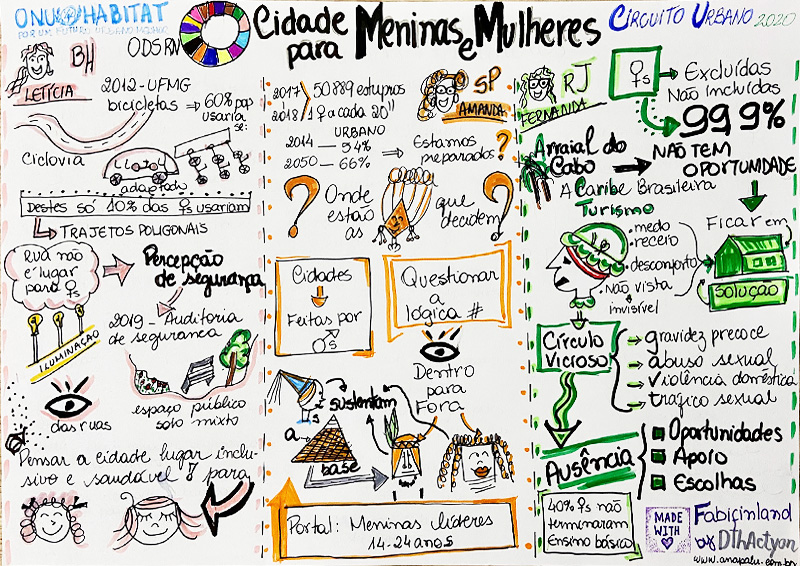 ONU HABITAT
POR UM FUTURO URBANO MELHOR
ODS RN
Cidade para Meninas e Mulheres
CIRCUITO URBANO 2020
BH
LETÍCIA
2012-UFMG
bicicletas → 60% pop
usaria
se:
Ciclovia
adaptado
Destes só 10% das ♀s usariam
TRAJETOS POLIGONAIS
Rua não
é lugar
para ♀s
Percepção
de segurança
ILUMINAÇÃO
2019 - Auditoria
de segurança
das ruas
espaço público
solo mixto
Pensar a cidade lugar inclu-
sivo e saudável para
SP
AMANDA
2017
2018
50 889 estupros
1 ♀ a cada 20"
URBANO
2014 — 54%
2050 — 66%
Estamos
preparados?
? Onde
estão
as
que
decidem ?
Cidades
Feitas por
♂s
Questionar
a
lógica #
Dentro
para
Fora
sustentam
a
base
Portal: Meninas líderes
14-24 anos
RJ
FERNANDA
♀s
Excluídas
Não incluídas
99,9%
NÃO TEM
OPORTUNIDADE
Arraial do
Cabo
A Caribe Brasileira
Turismo
• medo
receio
• desconforto
• Não vista
invisível
Ficar em
SOLUÇÃO
Círculo
Vicioso
gravidez precoce
abuso sexual
violência doméstica
trafico sexual
Ausência
Oportunidades
Apoio
Escolhas
40% ♀s não
terminaram
Ensino básico
MADE
WITH
Fabiçinland
by DThActyon
www.anapalu.com.br